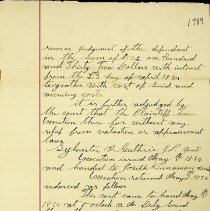 1789
recover judgement of the defendant
in the Sum of $132 on Hundred
and Thirty Two Dollars with interest
from the 23 day of April 1874
together with cost of suit and
accruing cost
it is further adjudged by
the court that the Plaintiff have
Execution ther for without any
relief from valuation or appraisment
laws
Sylvester C. Guthrie J.P. Seal
Execution issued May 6th 1874
and handed to
Execution returned May 29th
indorsed
The
1874 at 5 oclock